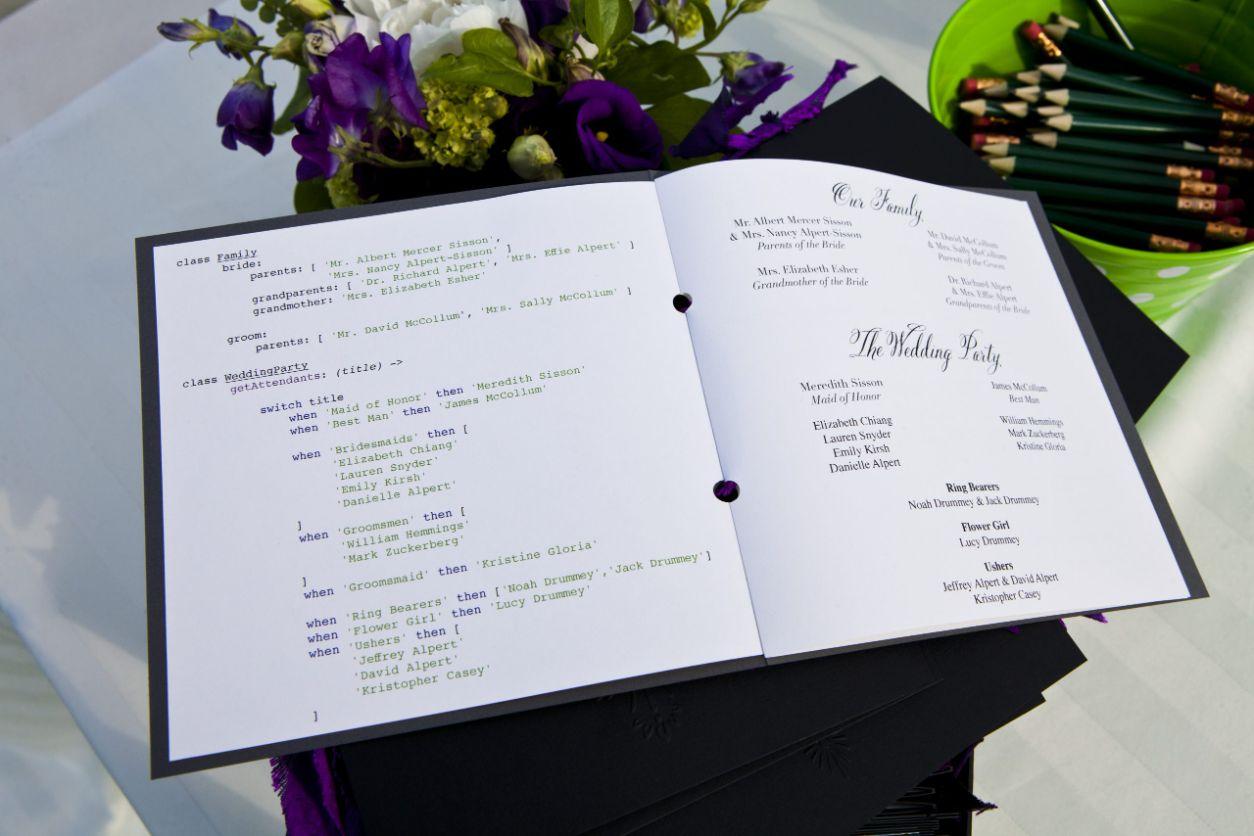 class Family
bride:
parents: [ 'Mr. Albert Mercer Sisson',
'Mrs. Nancy Alpert-Sisson' ]
grandparents: [ 'Dr. Richard Alpert', 'Mrs. Effie Alpert' ]
grandmother: 'Mrs. Elizabeth Esher'
groom:
parents: [ 'Mr. David McCollum', 'Mrs. Sally McCollum' ]
class WeddingParty
getAttendants: (title) ->
switch title
when 'Maid of Honor' then 'Meredith Sisson'
when 'Best Man' then 'James McCollum'
when 'Bridesmaids' then [
'Elizabeth Chiang'
'Lauren Snyder'
'Emily Kirsh'
'Danielle Alpert'
]
when 'Groomsmen' then [
'William Hemmings'
'Mark Zuckerberg'
]
when 'Groomsmaid' then 'Kristine Gloria'
when 'Ring Bearers' then ['Noah Drummey','Jack Drummey']
when 'Flower Girl' then 'Lucy Drummey'
when 'Ushers' then [
'Jeffrey Alpert'
'David Alpert'
'Kristopher Casey'
]
Our Family
Mr. Albert Mercer Sisson
& Mrs. Nancy Alpert-Sisson
Parents of the Bride
Mrs. Elizabeth Esher
Grandmother of the Bride
Mr. David McCollum
& Mrs. Sally McCollum
Parents of the Groom
Dr. Richard Alpert
& Mrs. Effie Alpert
Grandparents of the Bride
The Wedding Party
Meredith Sisson
Maid of Honor
Elizabeth Chiang
Lauren Snyder
Emily Kirsh
Danielle Alpert
James McCollum
Best Man
William Hemmings
Mark Zuckerberg
Kristine Gloria
Ring Bearers
Noah Drummey & Jack Drummey
Flower Girl
Lucy Drummey
Ushers
Jeffrey Alpert & David Alpert
Kristopher Casey